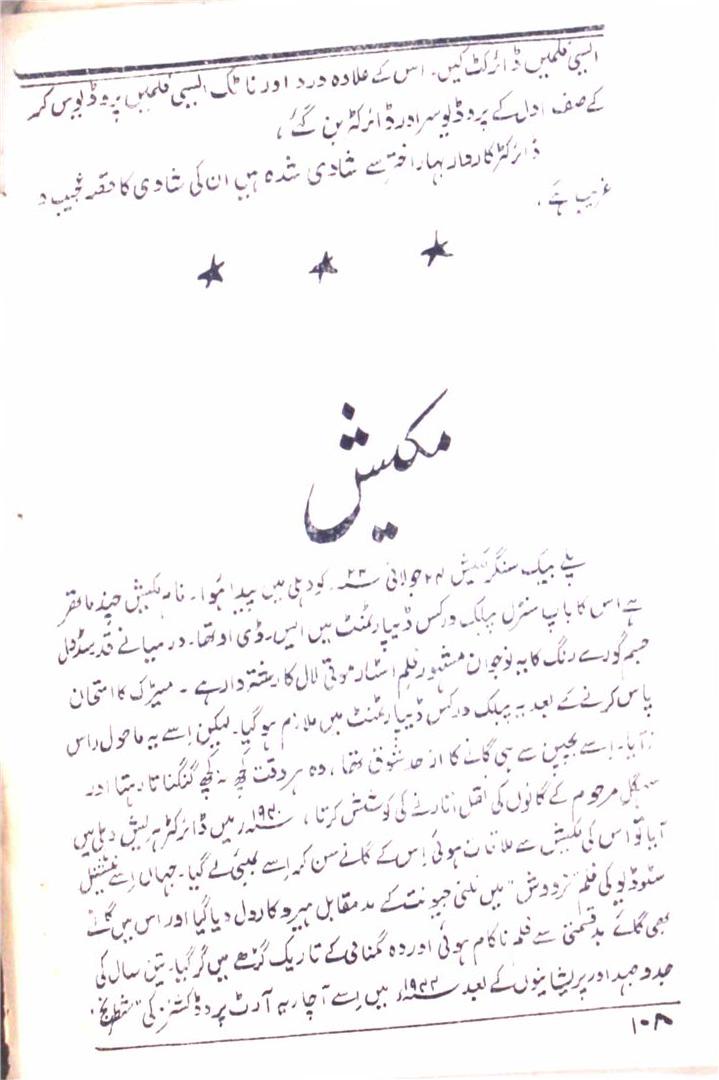 ایسی فلمیں ڈائرکٹ کیں۔ اس کے علاوہ درد اور ناٹک ایسی فلمیں پروڈیوس کر
کے صف اول کے پروڈیوسر اور ڈائرکٹر بن گئے،
ڈائرکٹر کاردار بہار اختر سے شادی شدہ ہیں ان کی شادی کا قصہ عجیب و
غریب ہے،
مکیش
پلے بیک سنگر مکیش ۲۲ جولائی ۲۳ء کو دہلی میں پیدا ہوا۔ نام مکیش چند ماتھر
ہے اس کا باپ سنٹرل پبلک ورکس ڈیپارٹمنٹ میں ایس۔ ڈی او تھا۔ درمیانے قد سڈول
جسم گورے رنگ کا یہ نوجوان مشہور فلم اسٹار موتی لال کا رشتہ دار ہے۔ میٹرک کا امتحان
پاس کرنے کے بعد یہ پبلک ورکس ڈیپارٹمنٹ میں ملازم ہو گیا۔ لیکن اسے یہ ماحول راس
نہ آیا۔ اسے بچپن سے ہی گانے کا از حد شوق تھا، وہ ہر وقت کچھ نہ کچھ گنگناتا رہتا اور
سہگل مرحوم کے گانوں کی نقل اتارنے کی کوشش کرتا، ۱۹۴۰ء میں ڈائرکٹر ہریش دہلی میں
آیا تو اس کی مکیش سے ملاقات ہوئی اس کے گانے سن کر اسے بمبئی لے گیا۔ جہاں اسے نیشنل
سٹوڈیو کی فلم "نردوش" میں نلنی جیونت کے مدمقابل ہیرو کا رول دیا گیا اور اس میں گانے
بھی گائے بدقسمتی سے فلم ناکام ہوئی اور وہ گمنامی کے تاریک گڑھے میں گر گیا۔ تین سال کی
جدوجہد اور پریشانیوں کے بعد ۱۹۴۳ء میں اسے آچاریہ آرٹ پروڈکشنز کی "شطرنج"
۱۰۸